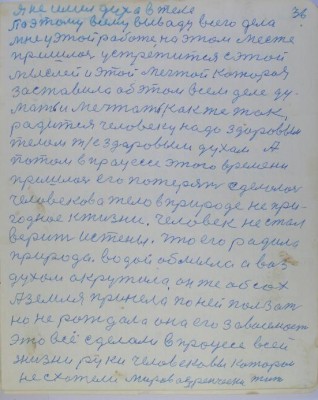 я не имел духа в теле
36
Поэтому всему выводу всего дела
мне у этой работе на этом месте
пришлося устретится с этой
мыслей и этой мечтой которая
заставила об этом всем деле ду-
мать и мечтать как же так,
родится человеку надо здоровым
телом т/к здоровым духом А
потом в процессе этого времени
пришлося его потерять сделался
человеково тело в природе не при-
годное к жизни. человек не стал
верить истены. что его родила
природа. водой обмыла а воз
духом окружила, он же обсох
А земля принела по ней ползат
но не рождала она его зависимость
это всё сделали в процессе всей
жизни руки человековы которые
не схотели жить